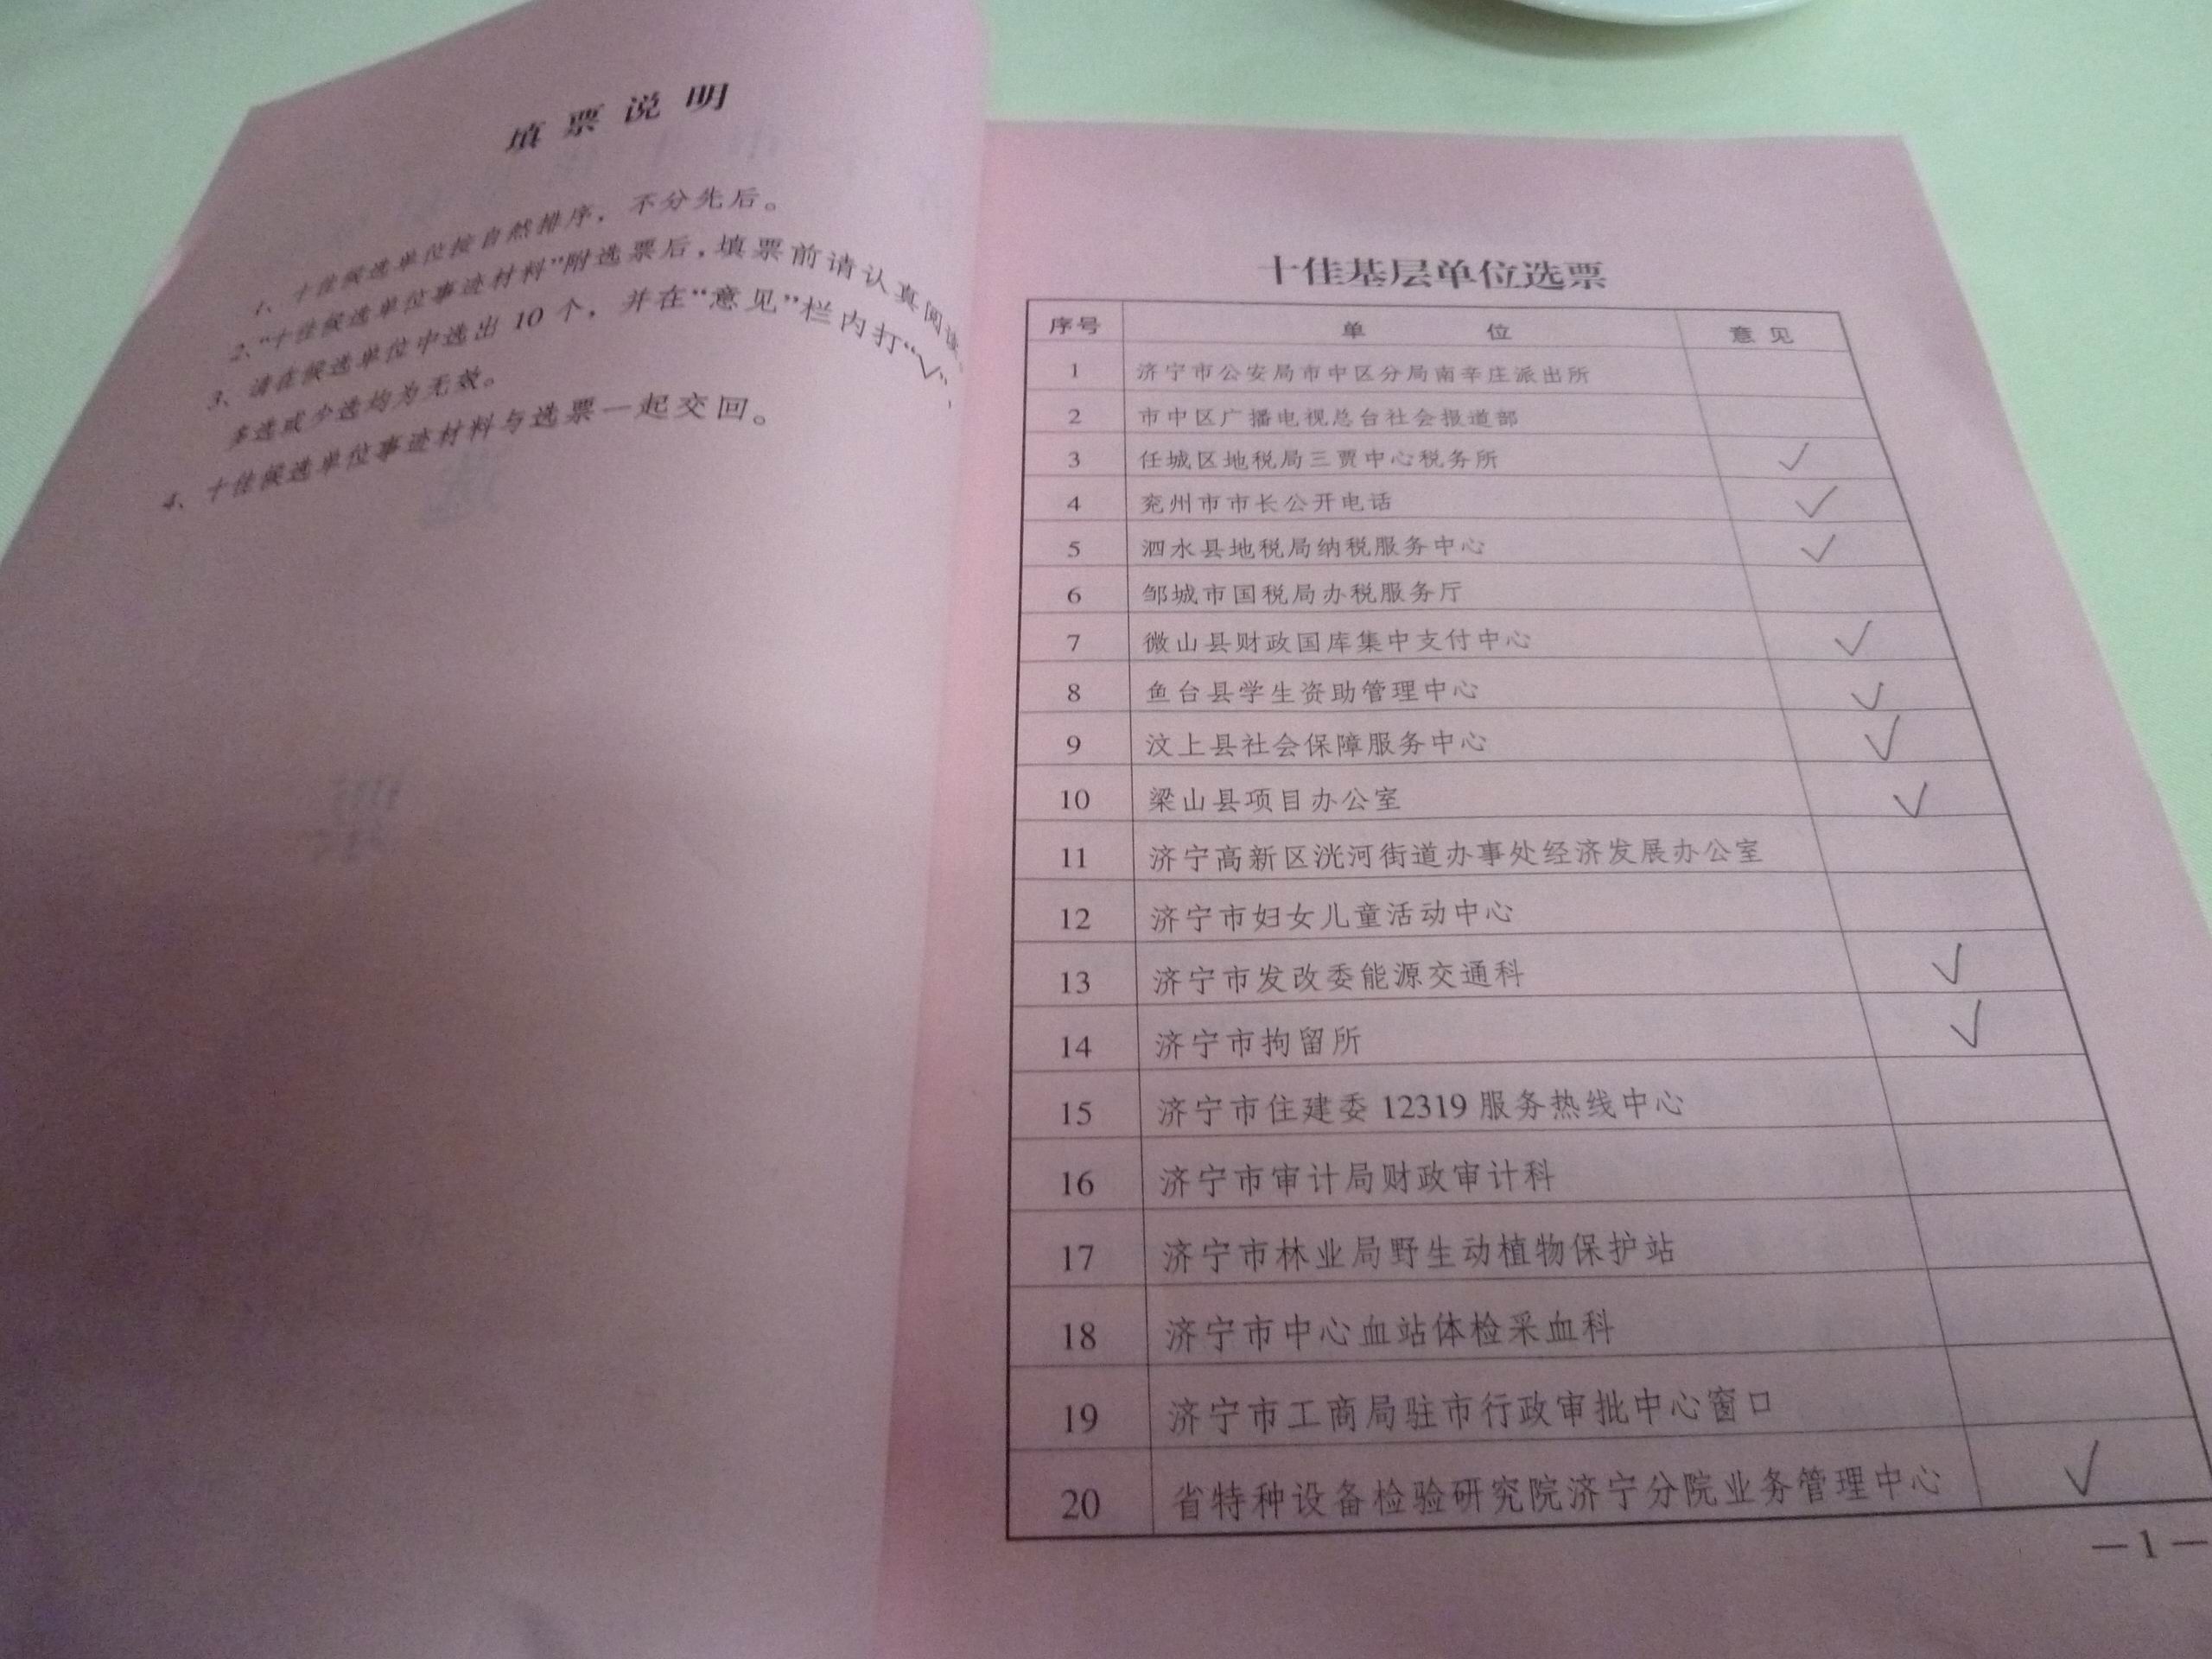 填票说明
1、十佳候选单位按自然排序，不分先后。
2、“十佳候选单位事迹材料”附选票后，填票前请认真阅读。
3、请在候选单位中选出 10 个，并在“意见”栏内打“√”，
多选或少选均为无效。
4、十佳候选单位事迹材料与选票一起交回。
十佳基层单位选票
序号 单位 意见
1 济宁市公安局市中区分局南辛庄派出所
2 市中区广播电视总台社会报道部
3 任城区地税局三贾中心税务所 √
4 兖州市市长公开电话 √
5 泗水县地税局纳税服务中心 √
6 邹城市国税局办税服务厅
7 微山县财政国库集中支付中心 √
8 鱼台县学生资助管理中心 √
9 汶上县社会保障服务中心 √
10 梁山县项目办公室 √
11 济宁高新区洸河街道办事处经济发展办公室
12 济宁市妇女儿童活动中心
13 济宁市发改委能源交通科 √
14 济宁市拘留所 √
15 济宁市住建委 12319 服务热线中心
16 济宁市审计局财政审计科
17 济宁市林业局野生动植物保护站
18 济宁市中心血站体检采血科
19 济宁市工商局驻市行政审批中心窗口
20 省特种设备检验研究院济宁分院业务管理中心 √
—1—